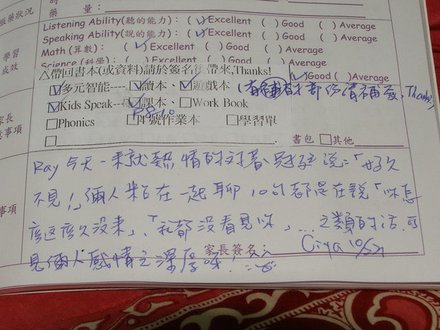 藥 量:
Listening Ability(聽的能力): (✓)Excellent ( )Good ( ) Average
Speaking Ability(說的能力): (✓)Excellent ( )Good ( ) Average
Math (算數): (✓) Excellent ( )Good ( )Average
Science (科學): ( )Excellent (✓)Good ( )Average
學習
成效
△帶回書本(或資料)請於簽名後帶來,Thanks!
☑多元智能 ☑讀本 ☑遊戲本 Thanks!
☑Kids Speak ☑課本 □Work Book
□Phonics □作業本 □學習單
書包 □其他
事項
Ray 今天一來就熱情的對著 說:「好久
不見!」倆人粘在一起聊 10句都是在說「你怎
麼這麼久沒來」、「我都沒看見你」... 之類的話,可
見倆人感情之深厚
家長簽名: Ciya 10/27